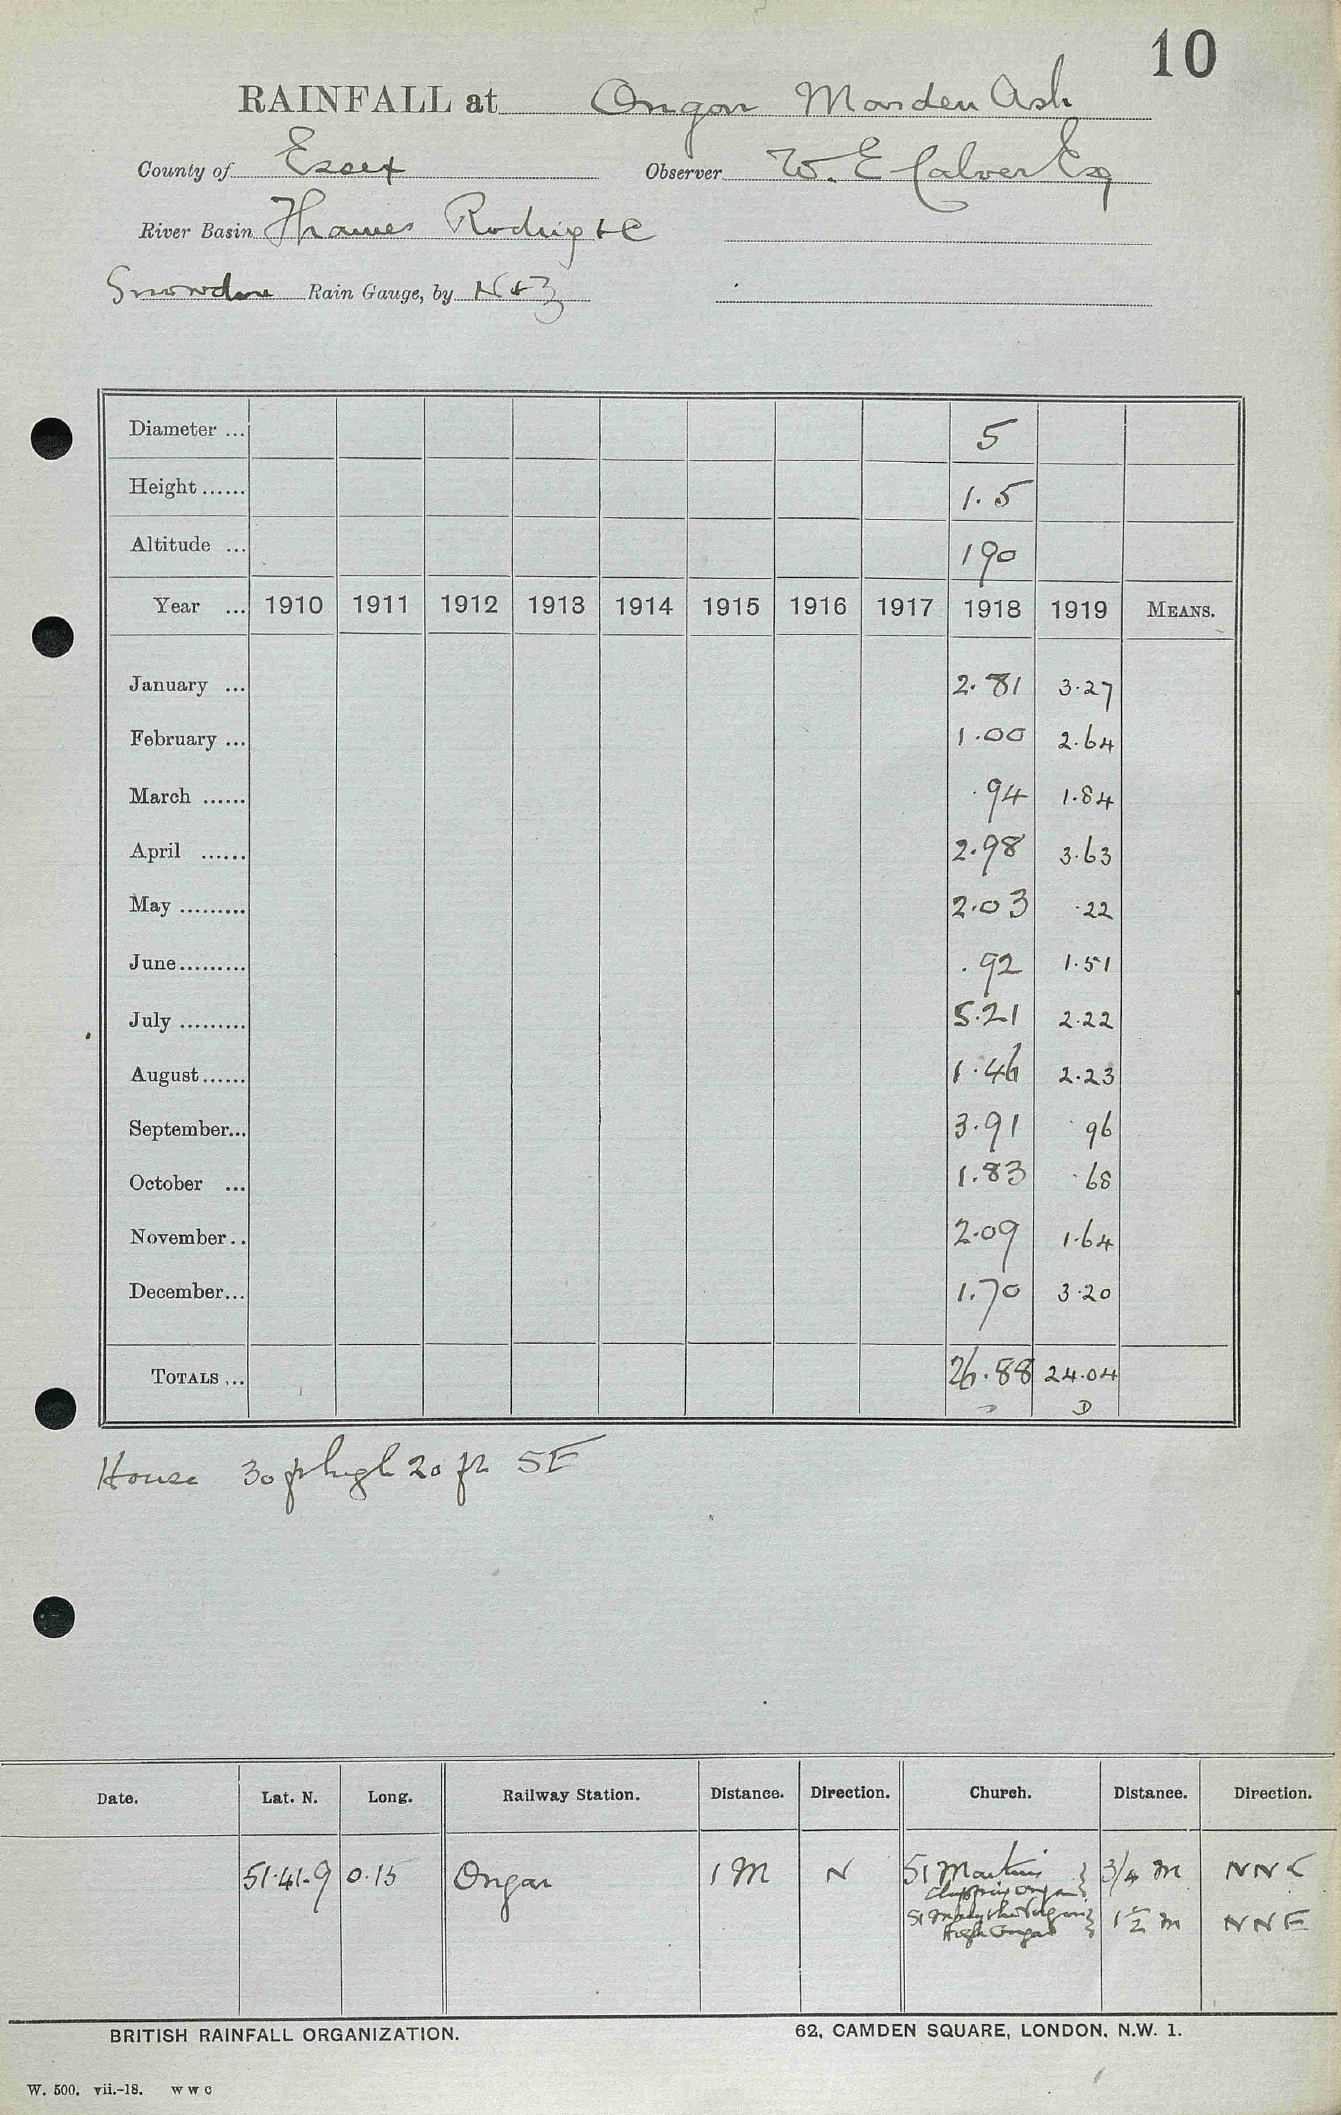 10
RAINFALL at Ongar Marden Ash
County of Essex Observer W. E Calver Esq
River Basin Thames Roding &c
Snowdon Rain Gauge, by N & Z
Diameter ... 5
Height ...... 1.5
Altitude ... 190
Year ... 1910 1911 1912 1913 1914 1915 1916 1917 1918 1919 MEANS.
January ... 2.81 3.27
February ... 1.00 2.64
March ...... .94 1.84
April ...... 2.98 3.63
May ......... 2.03 .22
June ......... .92 1.51
July ......... 5.21 2.22
August ...... 1.46 2.23
September... 3.91 .96
October ... 1.83 .68
November.. 2.09 1.64
December... 1.70 3.20
TOTALS ... 26.88 24.04
D
House 30 ft high 20 ft SE
Date. Lat. N. Long. Railway Station. Distance. Direction. Church. Distance. Direction.
51.41.9 0.15 Ongar 1 M N St Martins 3/4 m NNE
Chipping Ongar
St Mary the Virgin 1 1/2 m NNE
High Ongar
BRITISH RAINFALL ORGANIZATION. 62, CAMDEN SQUARE, LONDON, N.W. 1.
W. 500. vii.-18. W W C